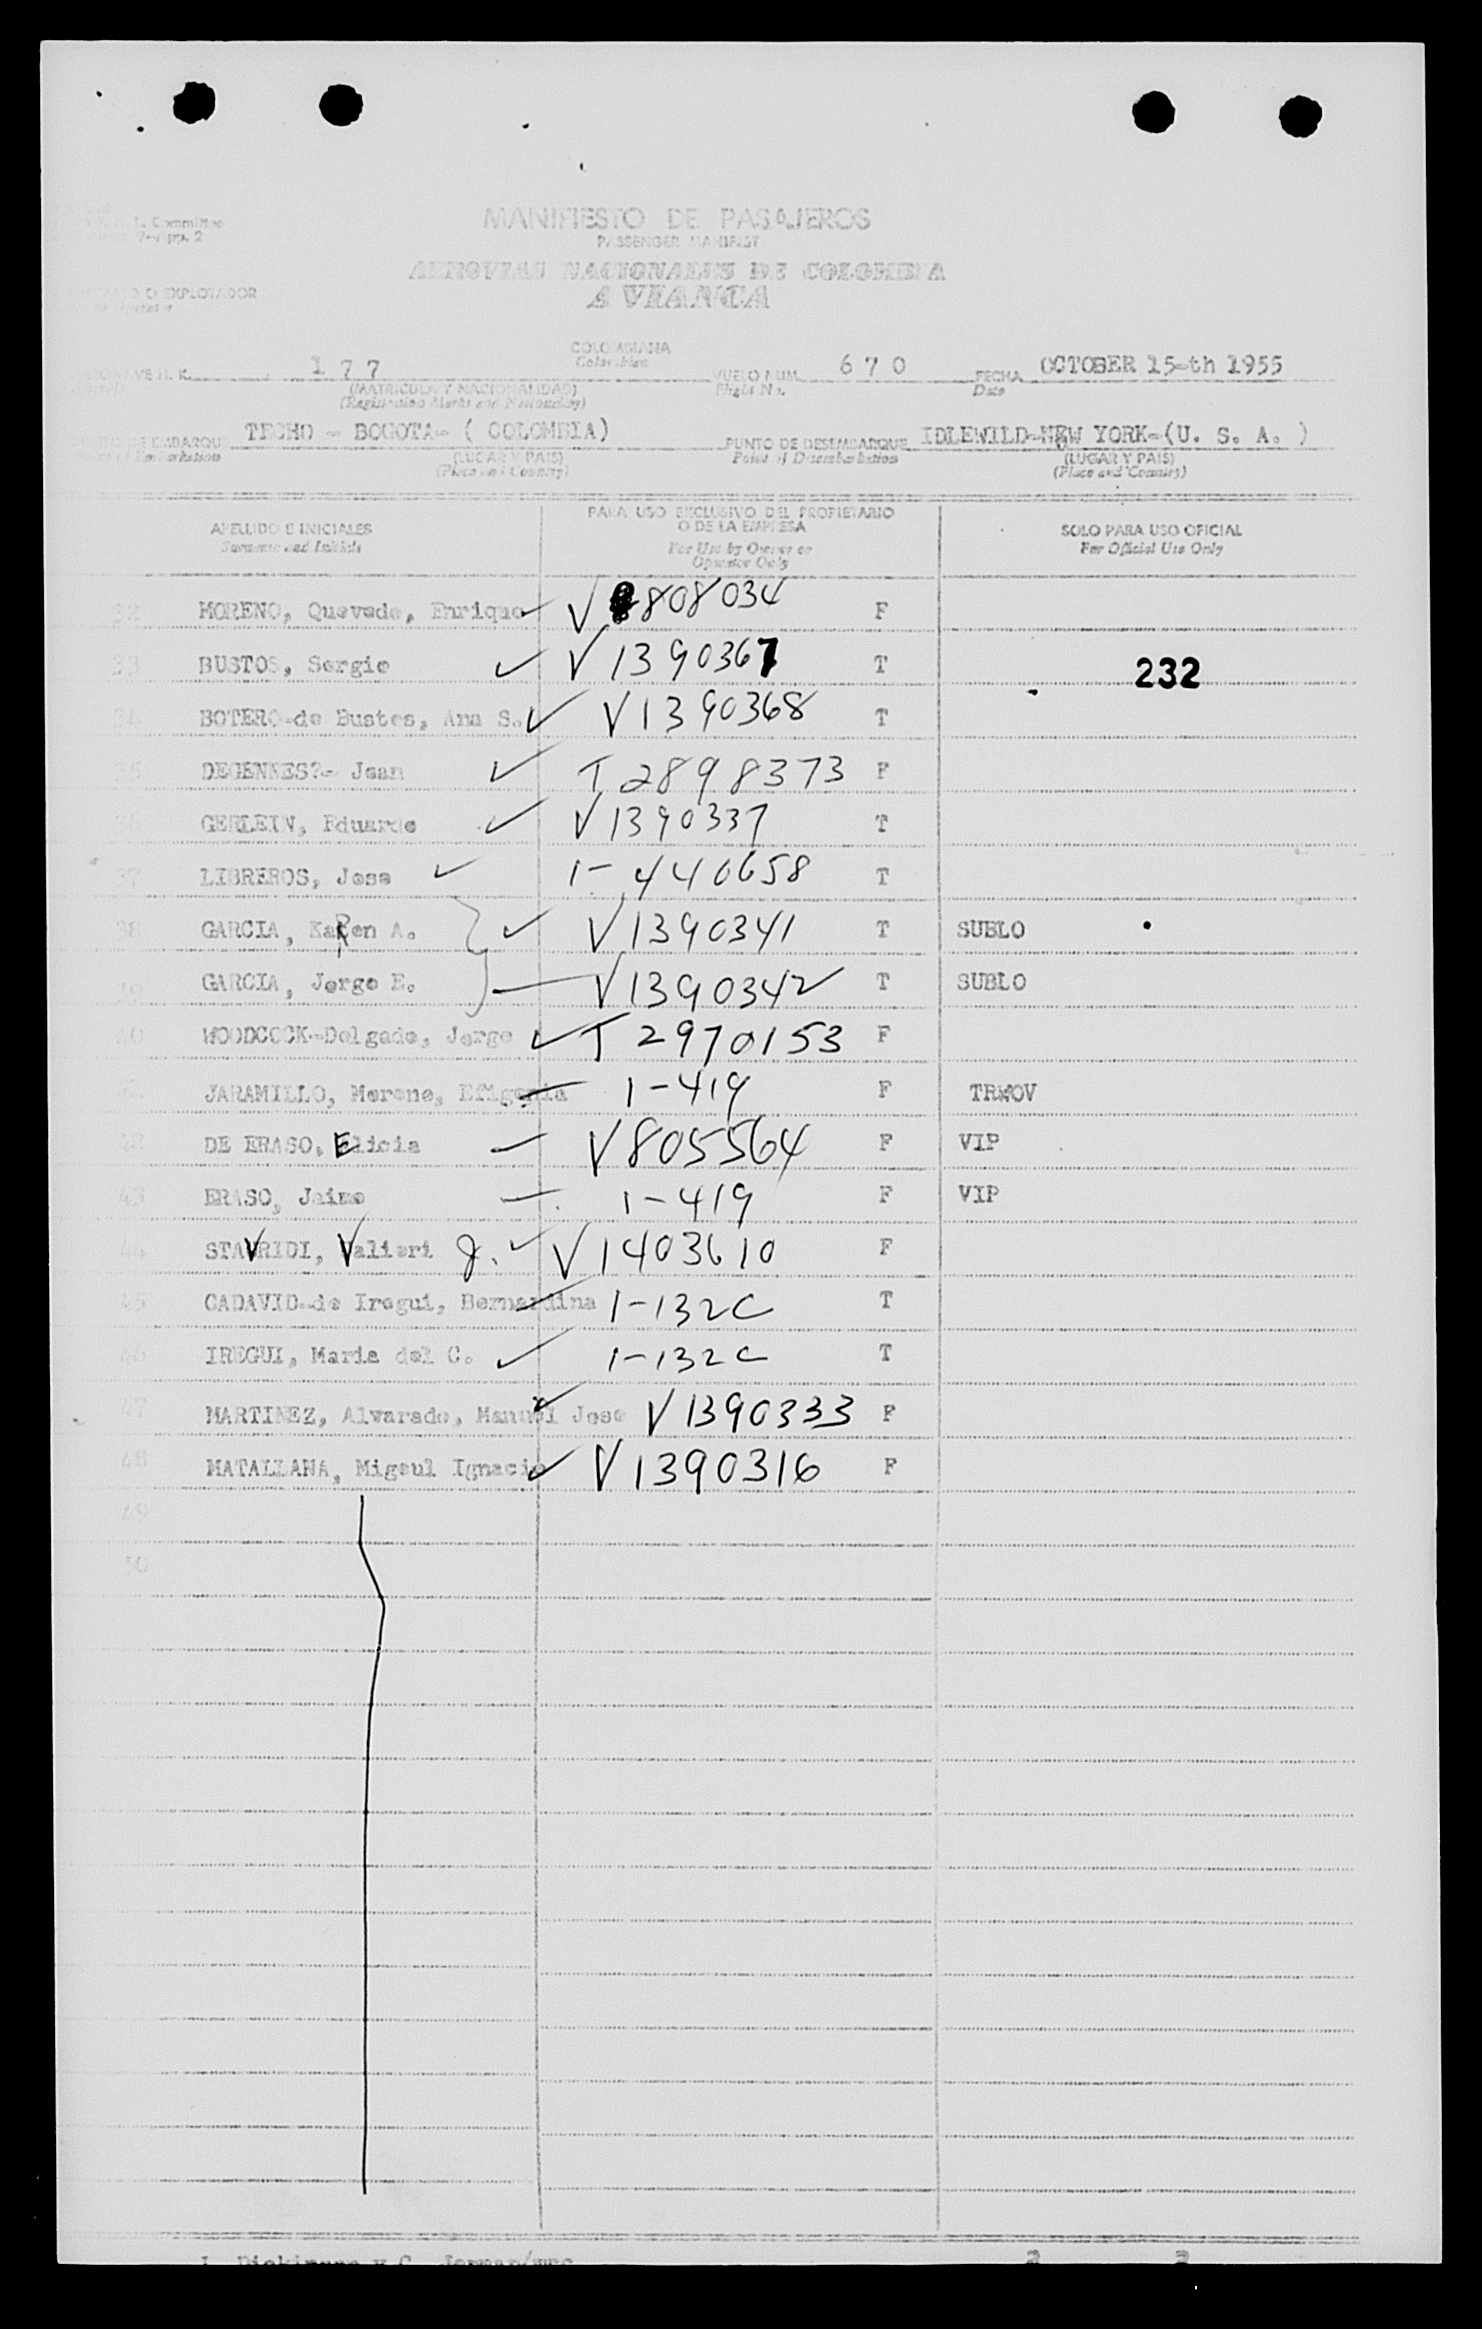 I. Committee
7-a pg. 2
MANIFIESTO DE PASAJEROS
PASSENGER MANIFEST
AEROVIAS NACIONALES DE COLOMBIA
AVIANCA
O EXPLOTADOR
COLOMBIANA
Colombian
H. K. 177 VUELO NUM. 670 FECHA OCTOBER 15-th 1955
(MATRICULA Y NACIONALIDAD) Flight No. Date
(Registration Marks and Nationality)
TECHO - BOGOTA- ( COLOMBIA) PUNTO DE DESEMBARQUE IDLEWILD-NEW YORK-(U. S. A. )
(LUGAR Y PAIS) Point of Disembarkation (LUGAR Y PAIS)
(Place and Country) (Place and Country)
APELLIDO E INICIALES PARA USO EXCLUSIVO DEL PROPIETARIO O DE LA EMPRESA SOLO PARA USO OFICIAL
Surname and Initials For Use by Owner or Operator Only For Official Use Only
32 MORENO, Quevedo, Enrique V 808034 F
33 BUSTOS, Sergio V 1390367 T 232
34 BOTERO-de Bustos, Ana S. V1390368 T
35 DEGENNES?- Jean T 2898373 F
36 GERLEIN, Eduardo V1390337 T
37 LIBREROS, Jose 1- 440658 T
38 GARCIA, KaRen A. V1390341 T SUBLO
39 GARCIA, Jorge E. V1390342 T SUBLO
40 WOODCOCK-Delgado, Jorge T 2970153 F
JARAMILLO, Moreno, Efigenia 1-419 F TRWOV
42 DE ERASO, Elicia V805564 F VIP
43 ERASO, Jaime 1-419 F VIP
44 STAVRIDI, Valieri J. V1403610 F
45 CADAVID-de Iregui, Bernardina 1-132C T
46 IREGUI, Maria del C. 1-132C T
47 MARTINEZ, Alvarado, Manuel Jose V1390333 F
48 MATALLANA, Migeul Ignacio V1390316 F
49
50